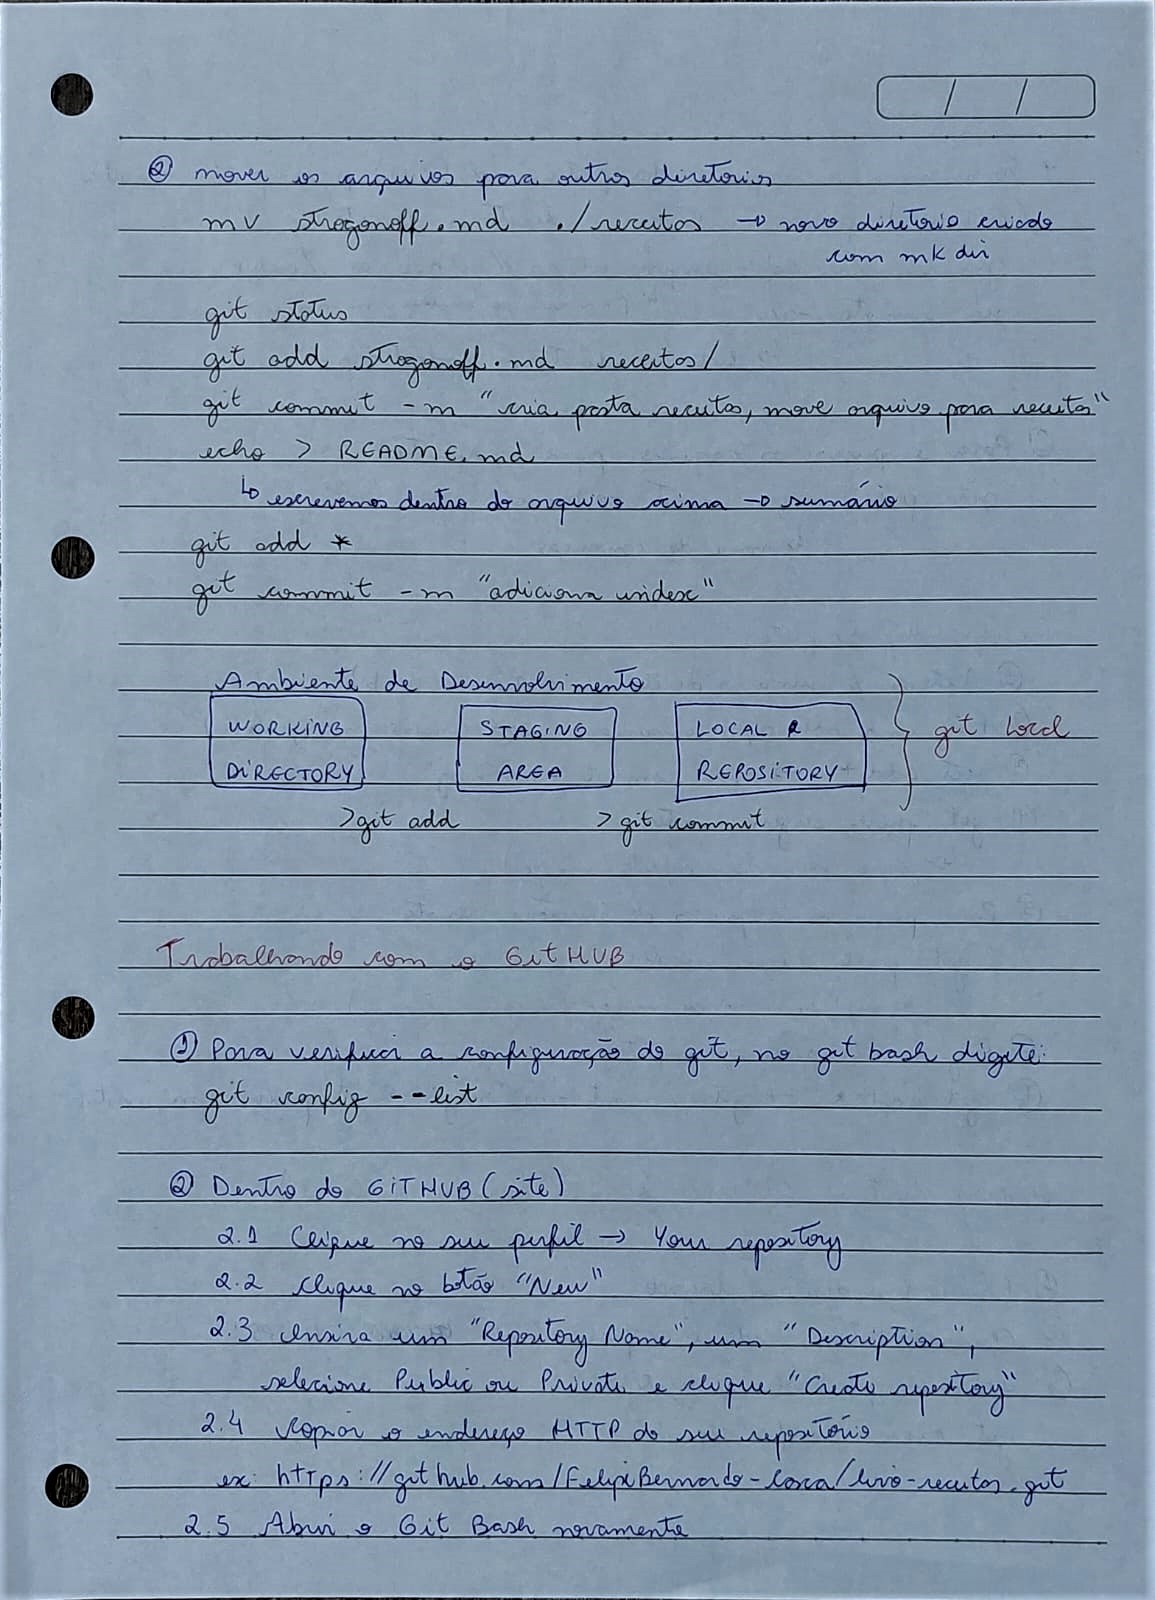 / /
② mover os arquivos para outros diretórios
mv strogonoff.md ./receitas → novo diretório criado
com mkdir
git status
git add strogonoff.md receitas/
git commit -m "cria pasta receitas, move arquivo para receitas"
echo > README.md
↳ escrevemos dentro do arquivo acima → sumário
git add *
git commit -m "adiciona index"
Ambiente de Desenvolvimento
WORKING DIRECTORY
STAGING AREA
LOCAL R REPOSITORY
git local
>git add >git commit
Trabalhando com o GitHUB
① Para verificar a configuração do git, no git bash digite:
git config --list
② Dentro do GITHUB (site)
2.1 Clique no seu perfil → Your repository
2.2 clique no botão "New"
2.3 insira um "Repository Name", um "Description",
selecione Public ou Private e clique "Create repository"
2.4 copiar o endereço HTTP do seu repositório
ex: https://github.com/
2.5 Abrir o Git Bash novamente